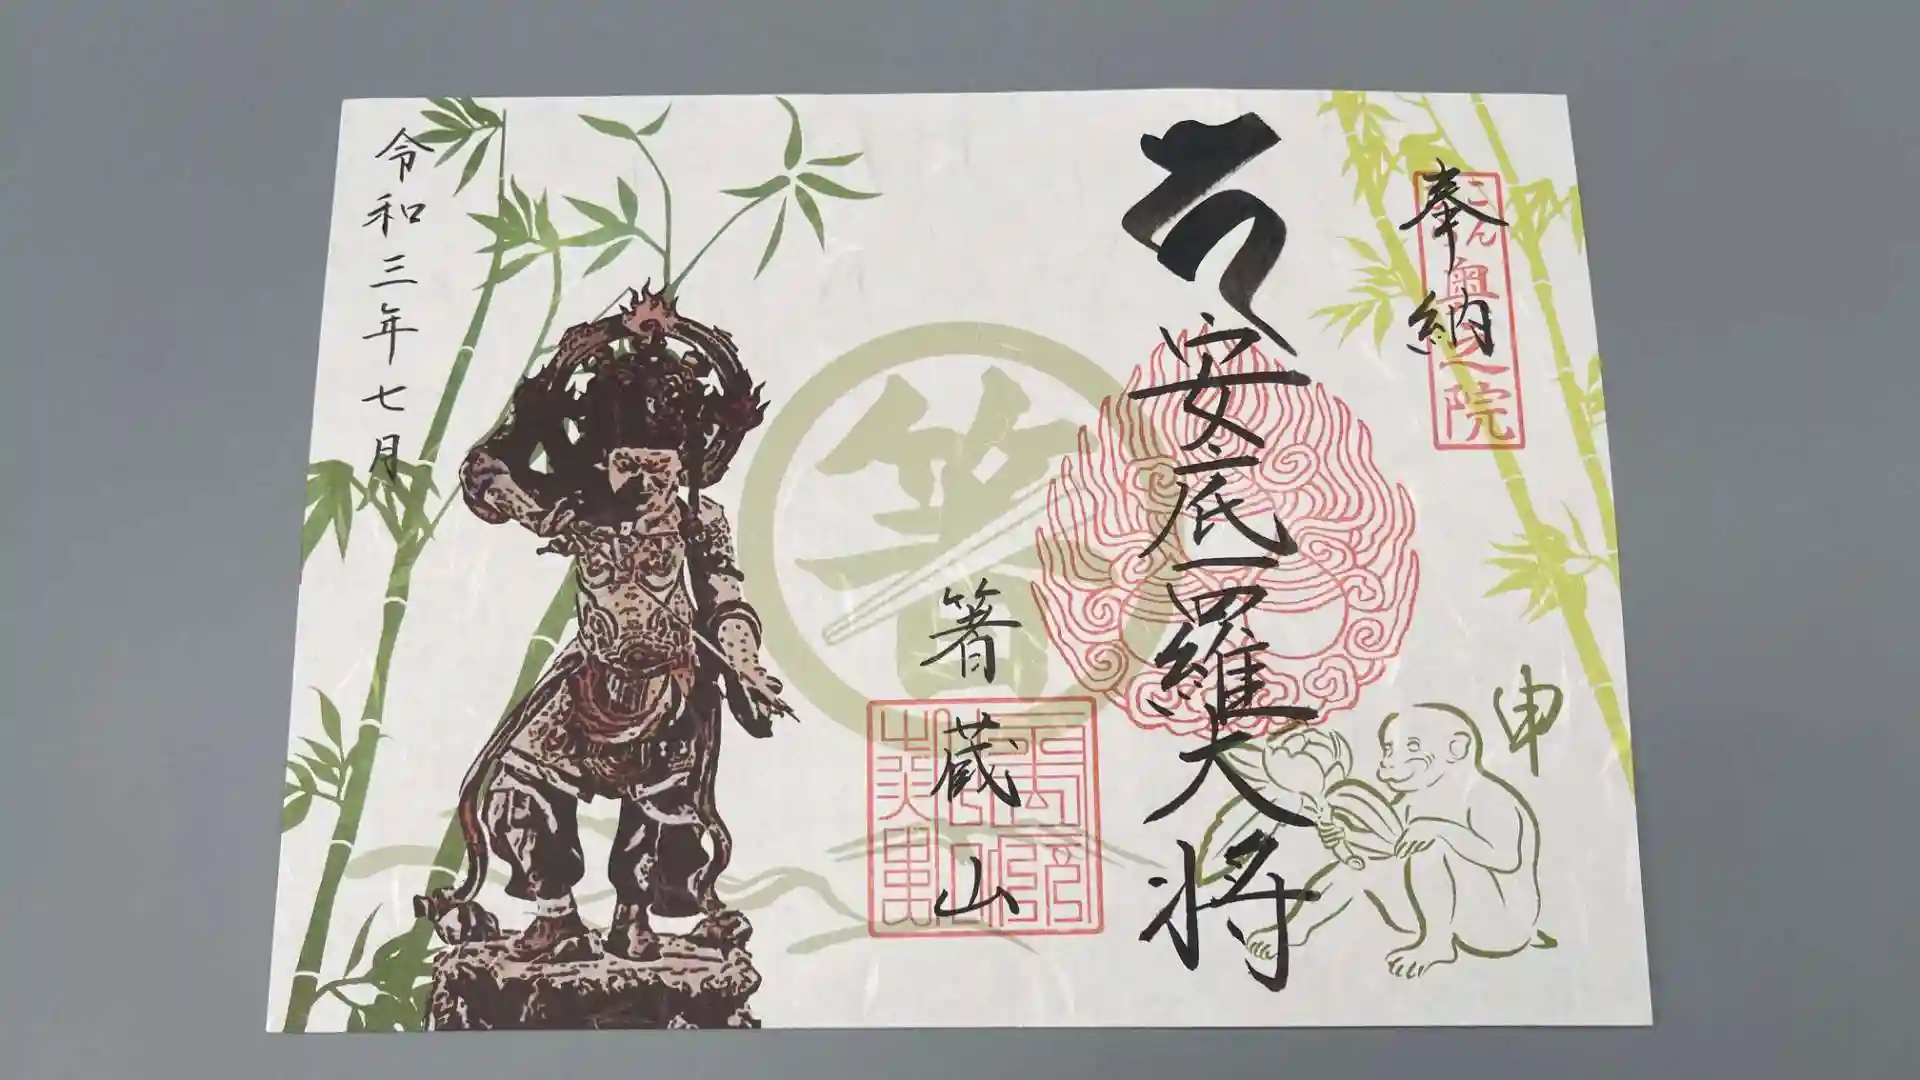 奉納
こんぴら
奥之院
安底羅大将
申
箸
箸蔵山
令和三年七月